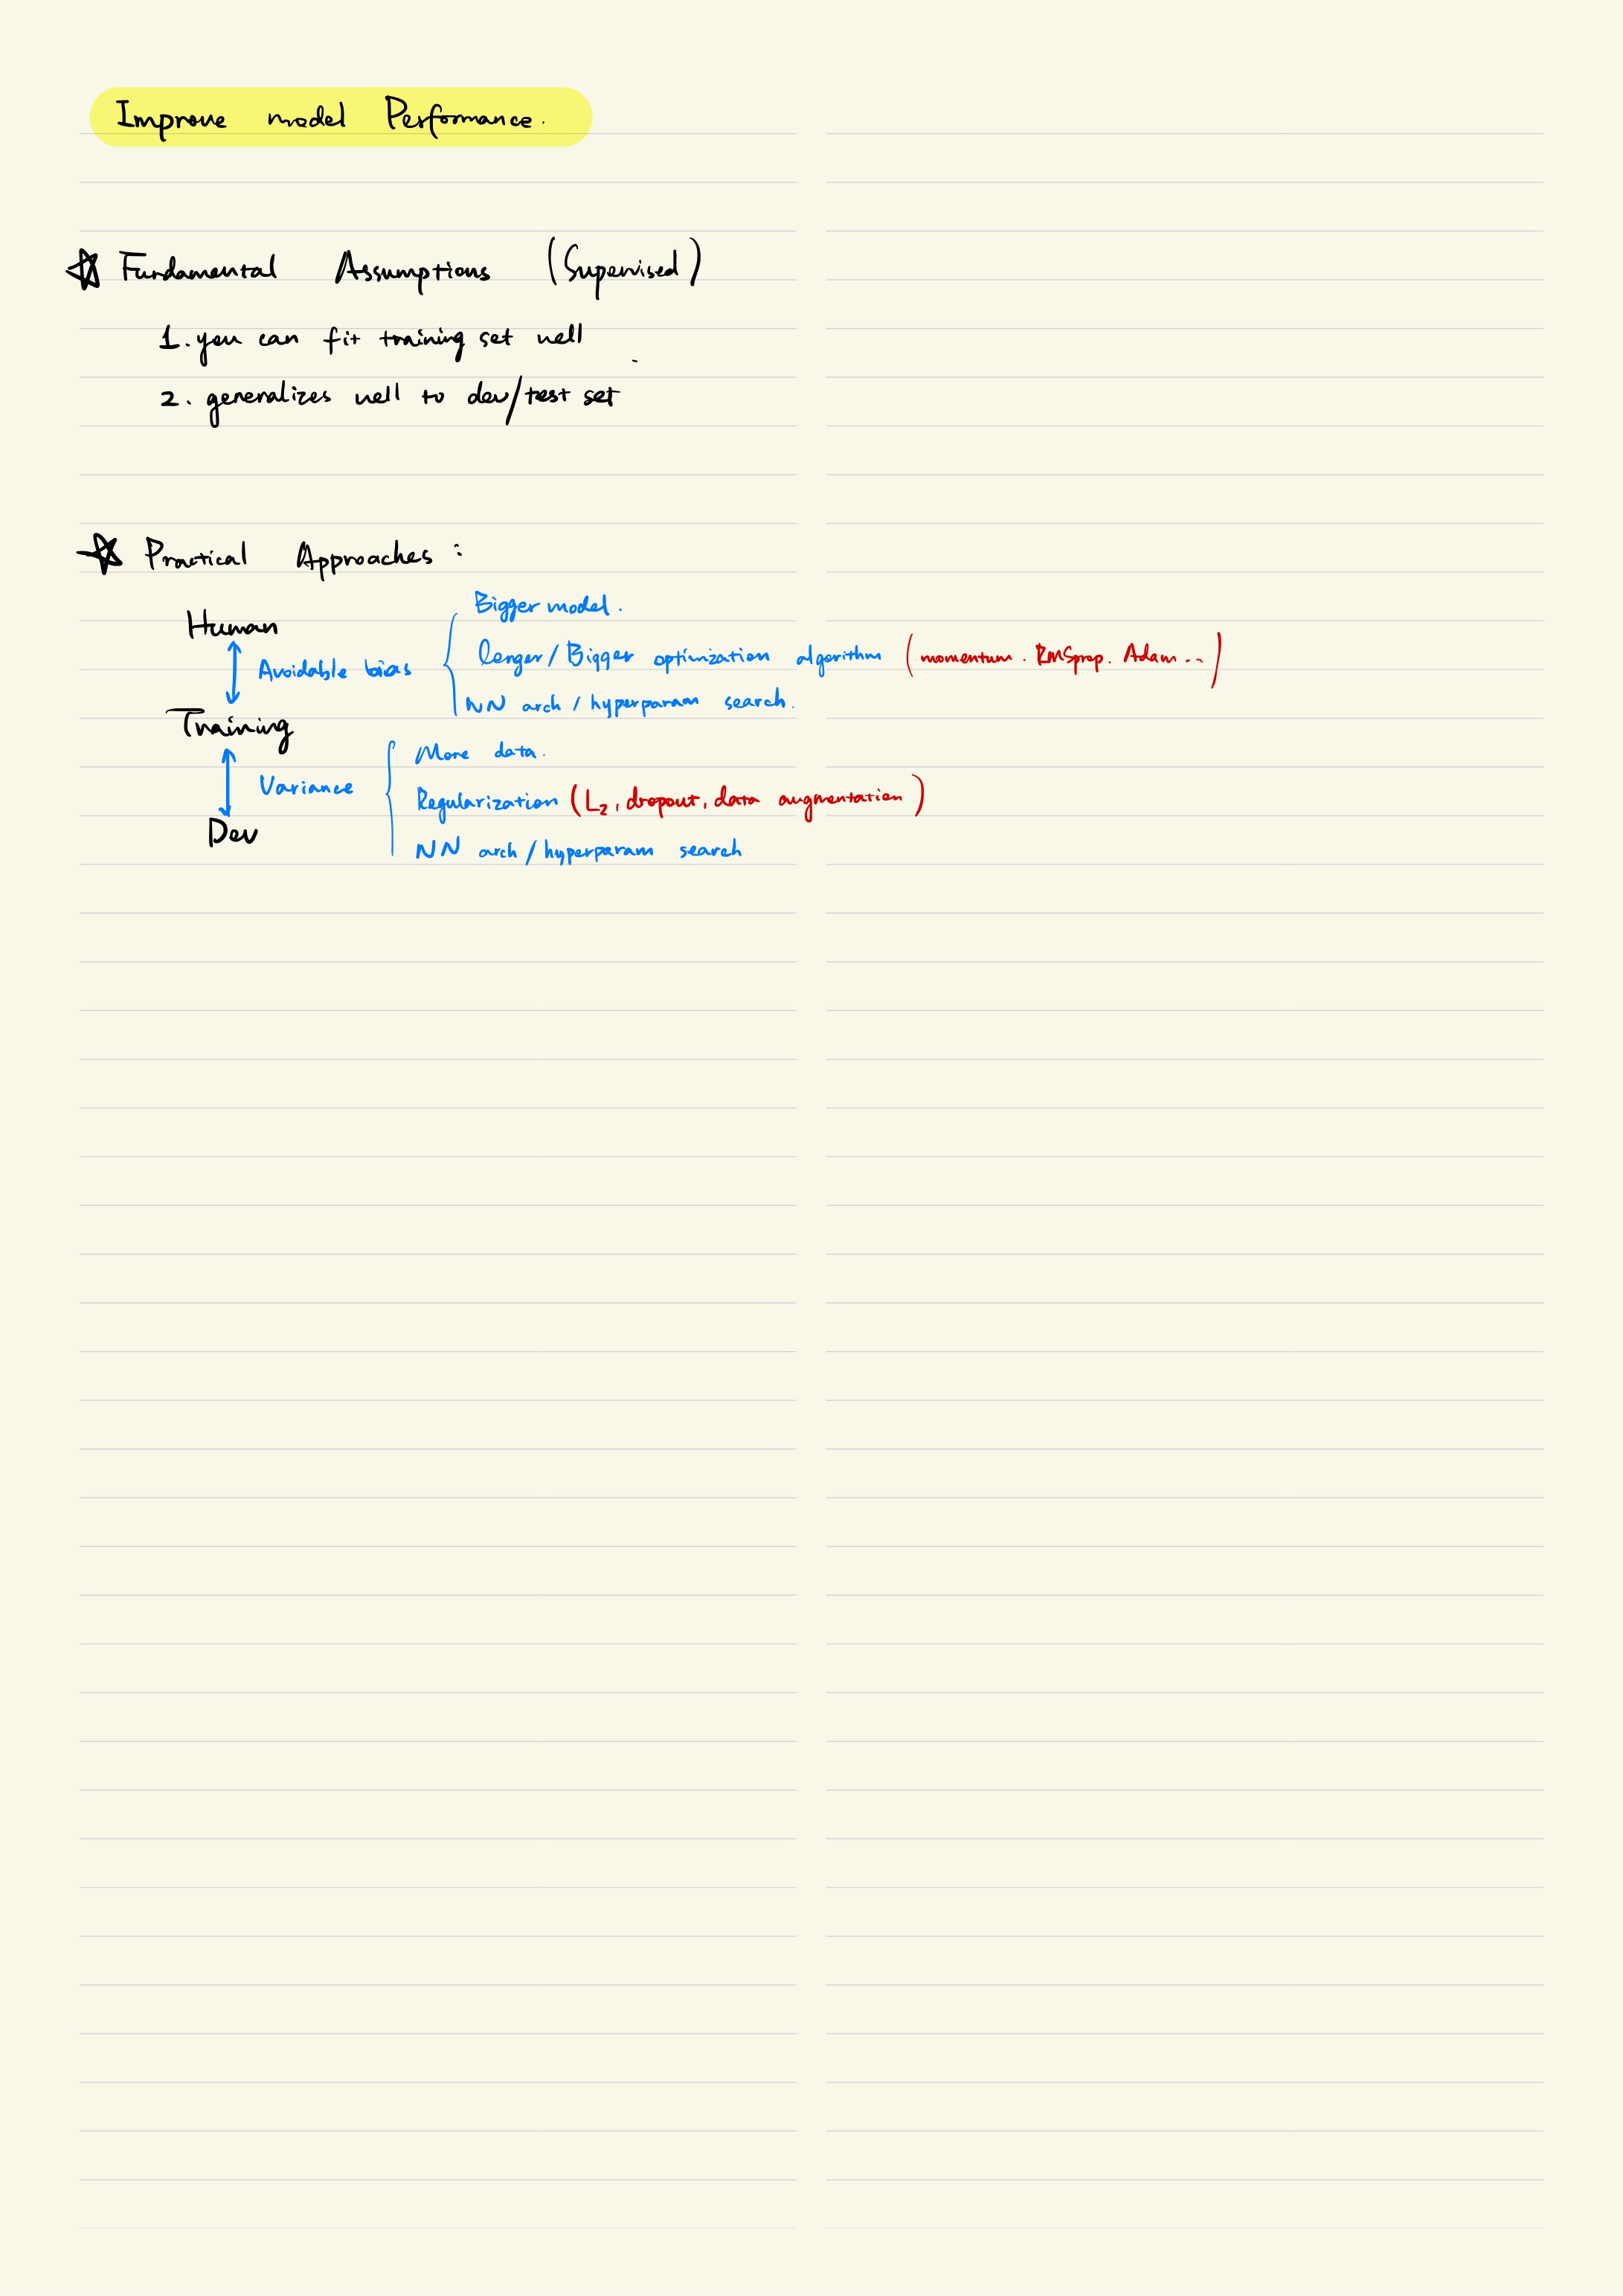 Improve model Performance.
Fundamental Assumptions (Supervised)
1. you can fit training set well
2. generalizes well to dev/test set
Practical Approaches :
Human
Bigger model.
Avoidable bias
longer/Bigger optimization algorithm (momentum. RMSprop. Adam ..)
NN arch / hyperparam search.
Training
More data.
Variance
Regularization (L2, dropout, data augmentation)
Dev
NN arch / hyperparam search